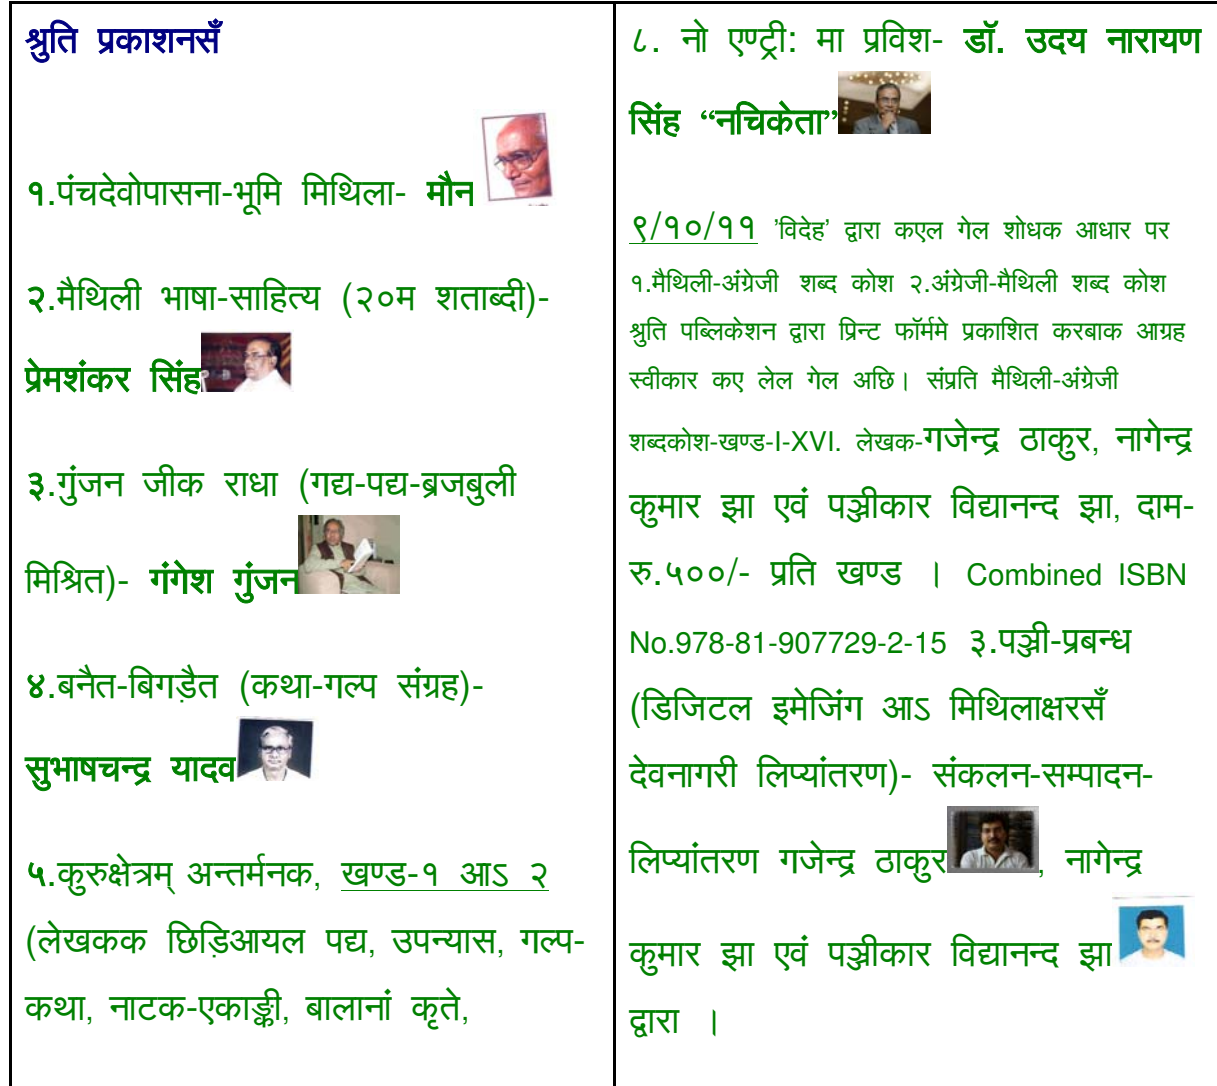 श्रुति प्रकाशनसँ
१.पंचदेवोपासना-भूमि मिथिला- मौन
२.मैथिली भाषा-साहित्य (२०म शताब्दी)-
प्रेमशंकर सिंह
३.गुंजन जीक राधा (गद्य-पद्य-ब्रजबुली
मिश्रित)- गंगेश गुंजन
४.बनैत-बिगड़ैत (कथा-गल्प संग्रह)-
सुभाषचन्द्र यादव
५.कुरुक्षेत्रम् अन्तर्मनक, खण्ड-१ आऽ २
(लेखकक छिड़िआयल पद्य, उपन्यास, गल्प-
कथा, नाटक-एकाङ्की, बालानां कृते,
८. नो एण्ट्री: मा प्रविश- डॉ. उदय नारायण
सिंह “नचिकेता”
९/१०/११ 'विदेह' द्वारा कएल गेल शोधक आधार पर
१.मैथिली-अंग्रेजी शब्द कोश २.अंग्रेजी-मैथिली शब्द कोश
श्रुति पब्लिकेशन द्वारा प्रिन्ट फॉर्ममे प्रकाशित करबाक आग्रह
स्वीकार कए लेल गेल अछि। संप्रति मैथिली-अंग्रेजी
शब्दकोश-खण्ड-I-XVI. लेखक-गजेन्द्र ठाकुर, नागेन्द्र
कुमार झा एवं पञ्जीकार विद्यानन्द झा, दाम-
रु.५००/- प्रति खण्ड । Combined ISBN
No.978-81-907729-2-15 ३.पञ्जी-प्रबन्ध
(डिजिटल इमेजिंग आऽ मिथिलाक्षरसँ
देवनागरी लिप्यांतरण)- संकलन-सम्पादन-
लिप्यांतरण गजेन्द्र ठाकुर, नागेन्द्र
कुमार झा एवं पञ्जीकार विद्यानन्द झा
द्वारा ।